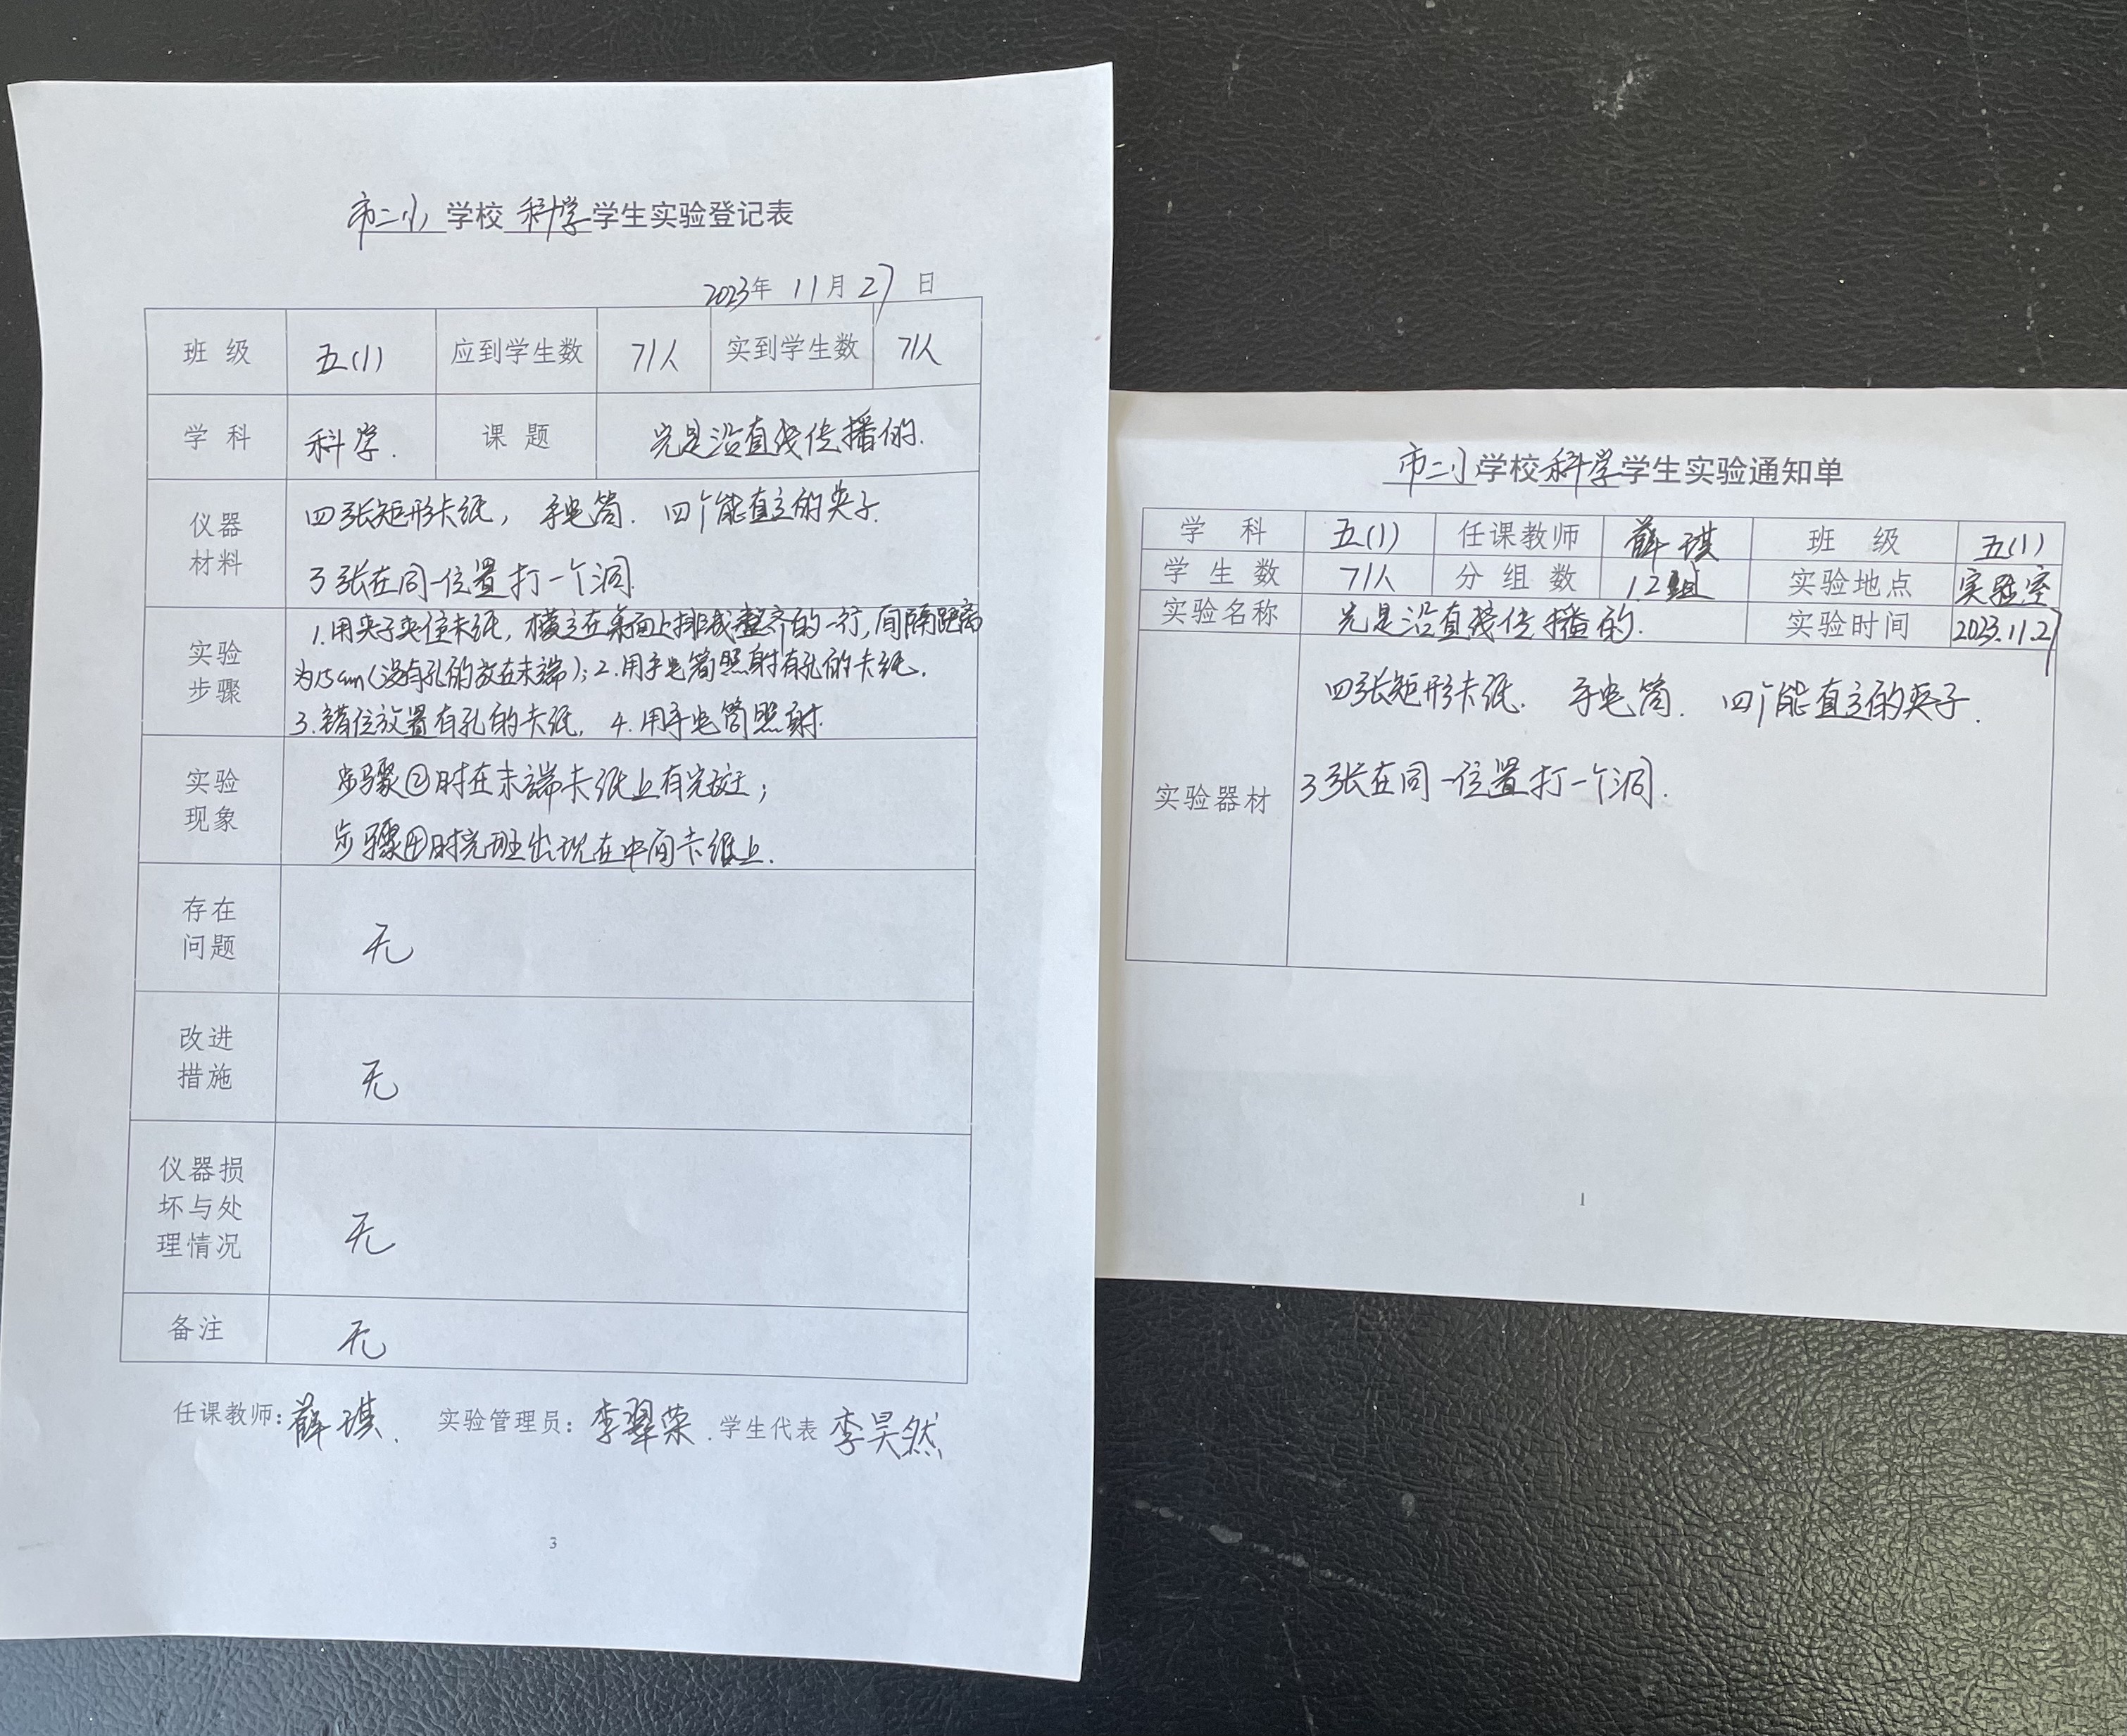 市二小学校科学学生实验登记表
2023年 11月27日
班 级 五(1) 应到学生数 71人 实到学生数 71人
学 科 科学. 课 题 光是沿直线传播的.
仪器材料 四张矩形卡纸, 手电筒. 四个能直立的夹子.
3张在同一位置打一个洞.
实验步骤 1.用夹子夹住卡纸, 横立在桌面上排成整齐的一行,间隔距离
为15cm(没有孔的放在末端);2.用手电筒照射有孔的卡纸.
3.错位放置有孔的卡纸. 4.用手电筒照射.
实验现象 步骤②时在末端卡纸上有光斑;
步骤④时光斑出现在中间卡纸上.
存在问题 无
改进措施 无
仪器损坏与处理情况 无
备注 无
任课教师:薛琪. 实验管理员:李翠荣. 学生代表 李昊然
3
市二小学校科学学生实验通知单
学 科 五(1) 任课教师 薛琪 班 级 五(1)
学生数 71人 分组数 12组 实验地点 实验室
实验名称 光是沿直线传播的. 实验时间 2023.11.27
实验器材 四张矩形卡纸. 手电筒. 四个能直立的夹子.
3张在同一位置打一个洞.
1